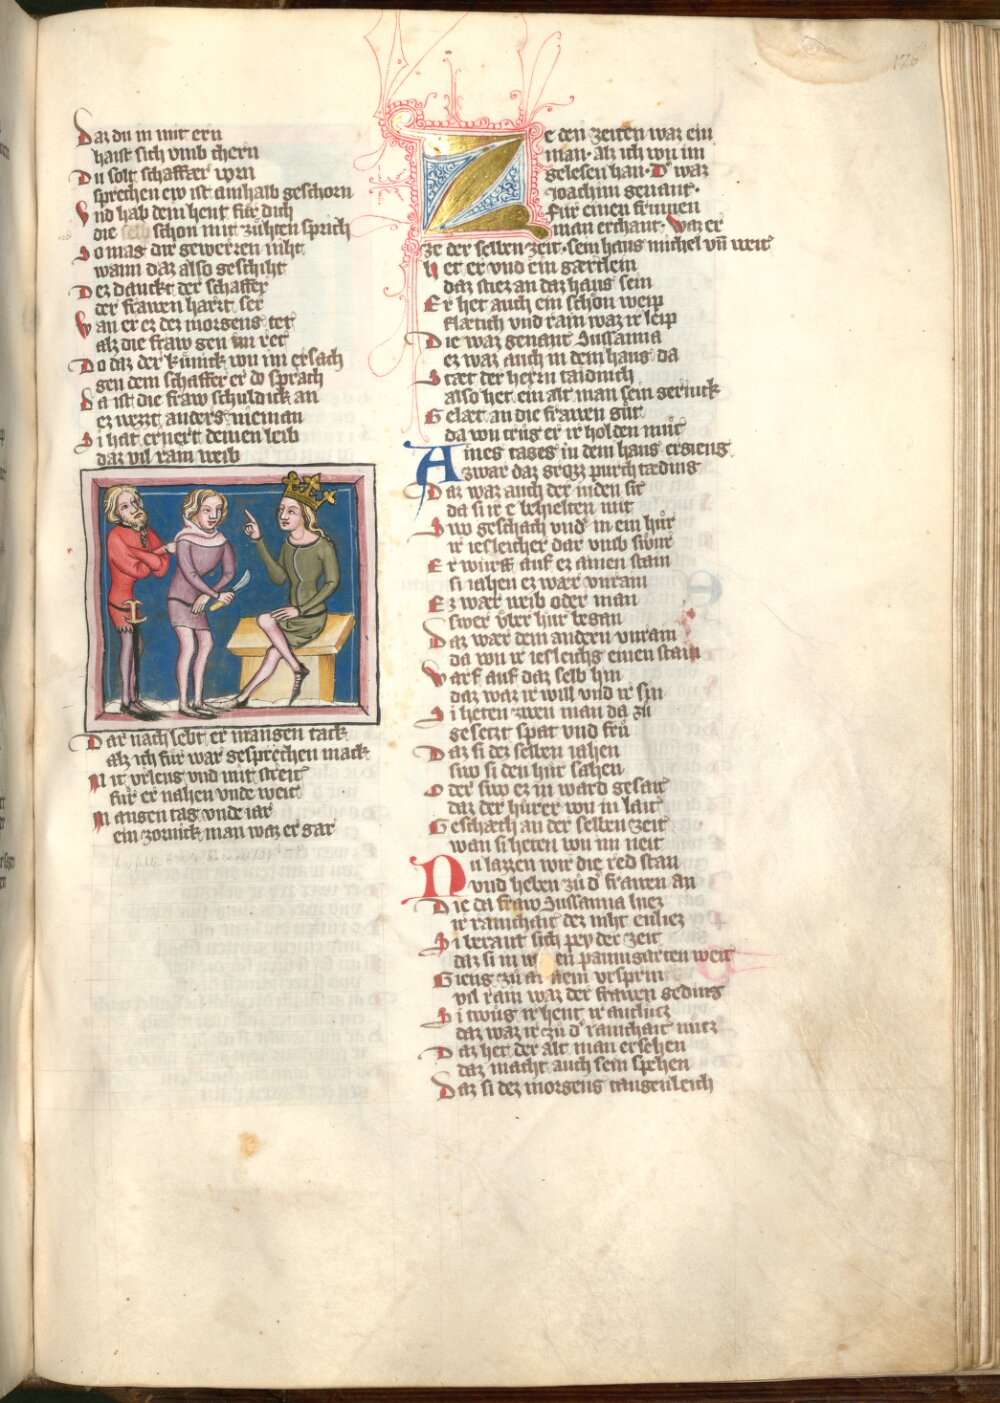 Daz du in mit ern
haist sich vmb chern
Du solt schaffær vorn
sprechen ew ist ainhalb geschorn
Vnd hab dein hent für dich
die selb schon mit zühten sprich
So mag dir gewerren niht
wann daz also geschiht
Dez dauckt der schaffer
der frawen harrt ser
Wan er ez dez morgens tet
alz die fraw gen im ret
Do daz der künick von im ersach
gen dem schaffer er do sprach
Da ist die fraw schuldick an
ez wezzt anders nieman
Si hat ernert deinen leib
daz vil rain weib
Dar nach lebt er mangen tack
alz ich für war gesprechen mack
Mit vrleug vnd mit streit
für er nahen vnde weit
Mangen tag vnde iar
ein zornick man waz er gar
Ze den zeiten waz ein
man· alz ich von im
gelesen han· Der waz
Joachim genant·
Für einen frumen
man erchant· Waz er
ze der selben zeit· sein haus michel vn̄ weit
Het er vnd ein gærtlein
daz stiez an daz haus sein
Er het auch ein schön weip
flætich vnd rain waz ir leip
Die waz genant Susanna
ez waz auch in dem haus da
Stæt der herrn taidinch
also het ein alt man sein gerinck
Gelæt an die frawen güt
da von trüg er ir holden müt
Aines tages in dem haus ergieng
zwar daz grozz purch tæding
Daz waz auch der iuden sit
da si ir e behielten mit
Swo geschach vnd in ein hür
ir iesleicher dar vmb swür
Er würff auf ez ainen stain
si iahen ez wær vnrain
Ez wær weib oder man
swer über hür began
Daz wær dem andern vnram
da von ir iesleichs einen stain
Warf auf daz selb hin
daz waz ir will vnd ir sin
Si heten zwen man da zü
gesetzt spat vnd frü
Daz si dez selben iahen
swo si den hür sahen
Oder swo ez in ward gesait
daz der hürer von in lait
Geschæch an der selben zeit
wan si heten von im neit
Nu lazzen wir die red stan
vnd heben zü der frawen an
Die da fraw Susanna hiez
ir rainchait dez niht enliez
Si berait sich pey der zeit
daz si in en paumgarten weit
Gieng zü ainem vrsprin
vil rain waz der frawen geding
Si twüg ir hent ir antlütz
daz waz ir zü der rainchait nütz
Daz het der alt man ersehen
daz macht auch sein spehen
Daz si dez morgens taugenleich